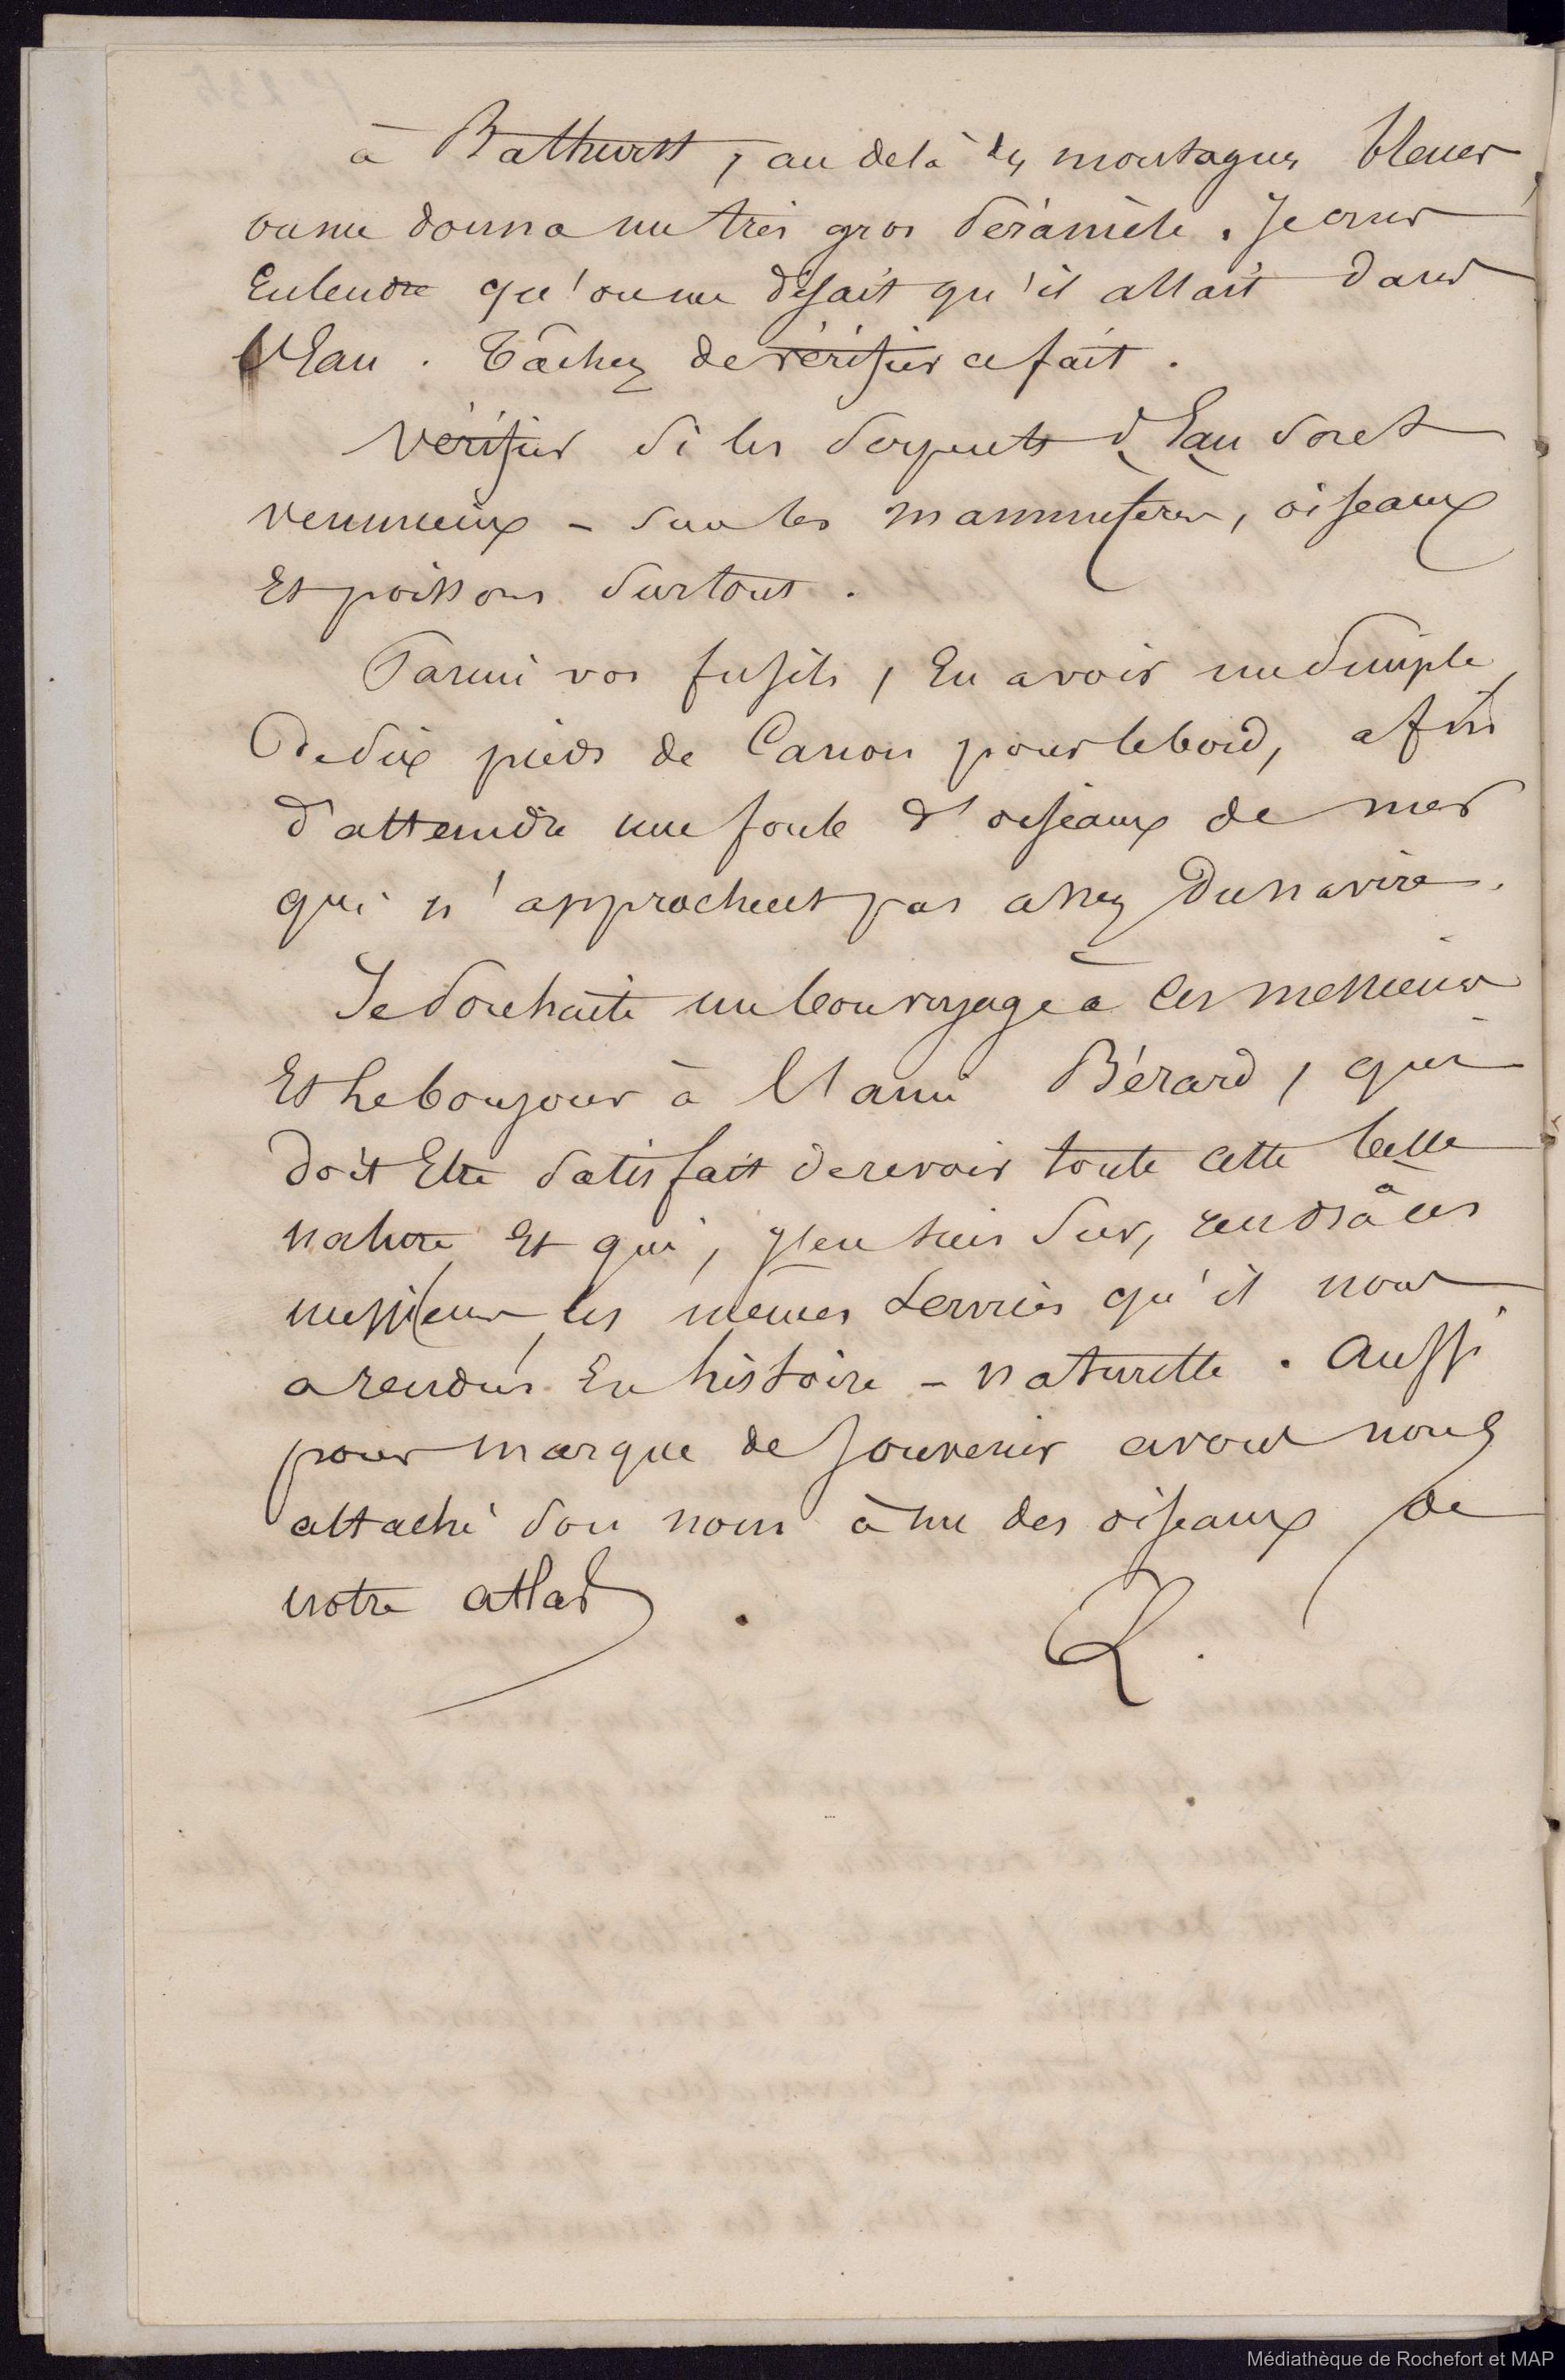 à Bathurst, au delà des montagnes bleues,
on me donna un très gros Péramèle. Je crus
Entendre qu'on me disait qu'il allait dans
l'Eau. Tâchez de vérifier ce fait.
Vérifier si les Serpents d'Eau sont
venimeux - sur les mammifères, oiseaux
Et poissons surtout.
Parmi vos fusils, En avoir un simple,
De six pieds de Canon pour le bord, afin
d'atteindre une foule d'oiseaux de mer
qui n'approchent pas assez du navire.
Je souhaite un bon voyage à ces messieurs
Et le bonjour à l'ami Bérard, qui
doit Etre satisfait de revoir toute cette belle
nature Et qui, j'en suis sur, rendra à ces
messieurs les mêmes services qu'il nous
a rendus En histoire - naturelle. Aussi
pour marque de souvenir avons nous
attaché son nom à un des oiseaux de
notre atlas.
Q.
Médiathèque de Rochefort et MAP